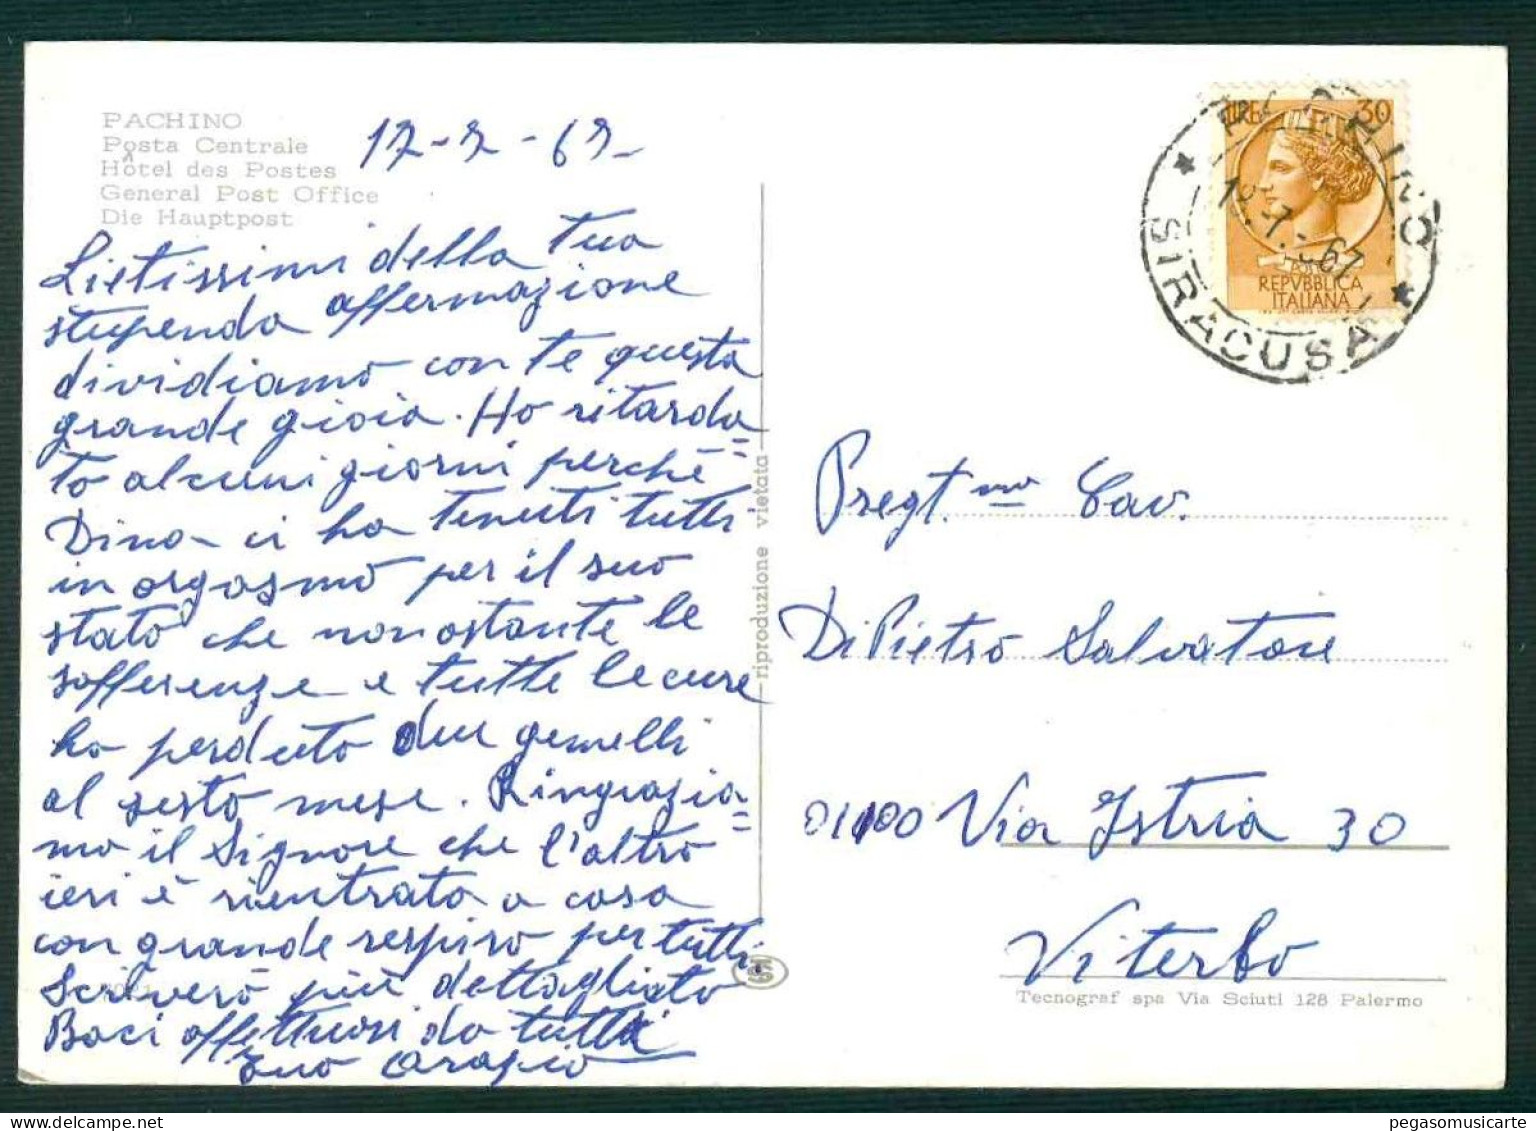 PACHINO
Posta Centrale
Hôtel des Postes
General Post Office
Die Hauptpost
17-7-67
Lietissimi della tua
stupenda affermazione
dividiamo con te questa
grande gioia. Ho ritarda=
to alcuni giorni perchè
Dino ci ha tenuti tutti
in orgasmo per il suo
stato che nonostante le
sofferenze e tutte le cure
ho perduto due gemelli
al sesto mese. Ringrazia=
mo il Signore che l'altro
ieri è rientrato a casa
con grande respiro per tutti.
Scriverò più dettagliato
Baci affettuosi da tutti
tuo Orazio
riproduzione vietata
LIRE 30
POSTE
REPVBBLICA
ITALIANA
PACHINO
SIRACUSA
-7.-67
Pregt.mo Cav.
Di Pietro Salvatore
01100 Via Istria 30
Viterbo
Tecnograf spa Via Sciuti 128 Palermo
pegasomusicarte